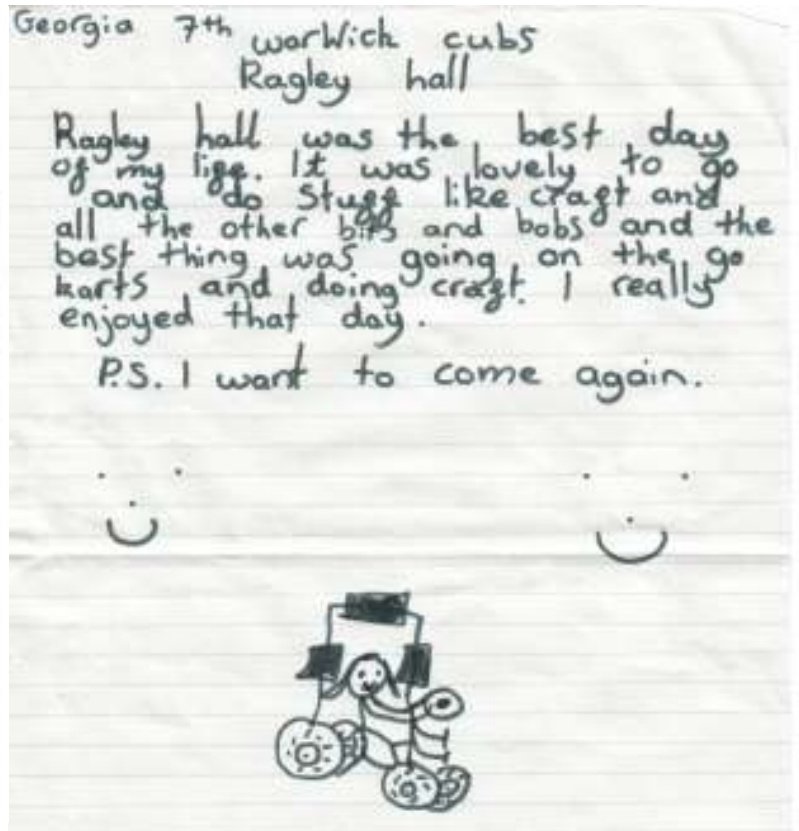 Georgia 7th warwick cubs
Ragley hall
Ragley hall was the best day
of my life. It was lovely to go
and do stuff like craft and
all the other bits and bobs and the
best thing was going on the go
karts and doing craft. I really
enjoyed that day.
P.S. I want to come again.